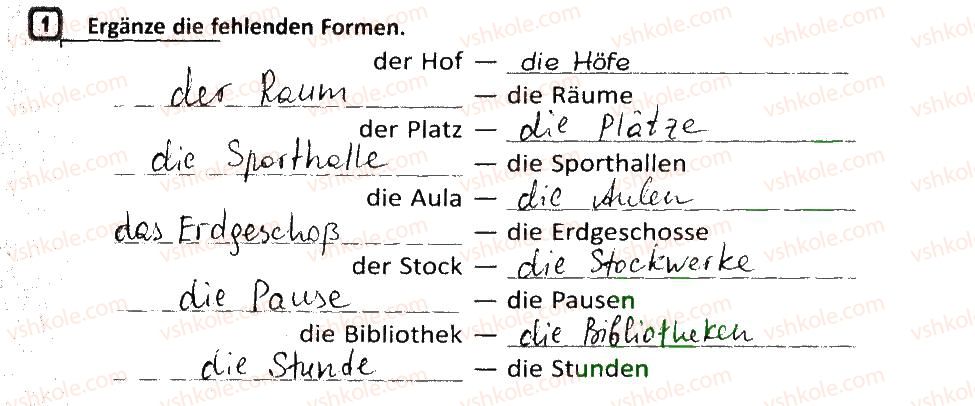 1 Ergänze die fehlenden Formen.
der Hof — die Höfe
der Raum — die Räume
der Platz — die Plätze
die Sporthalle — die Sporthallen
die Aula — die Aulen
das Erdgeschoß — die Erdgeschosse
der Stock — die Stockwerke
die Pause — die Pausen
die Bibliothek — die Bibliotheken
die Stunde — die Stunden
vshkole.com